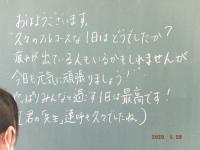 おはようございます。
久々のフルコースな1日はどうでしたか?
疲れが出ている人もいるかもしれませんが、
今日も元気に頑張りましょう!
やっぱりみんなで過ごす1日は最高です!
(君の「先生」連呼も久々でしたね。)
2020 5.28